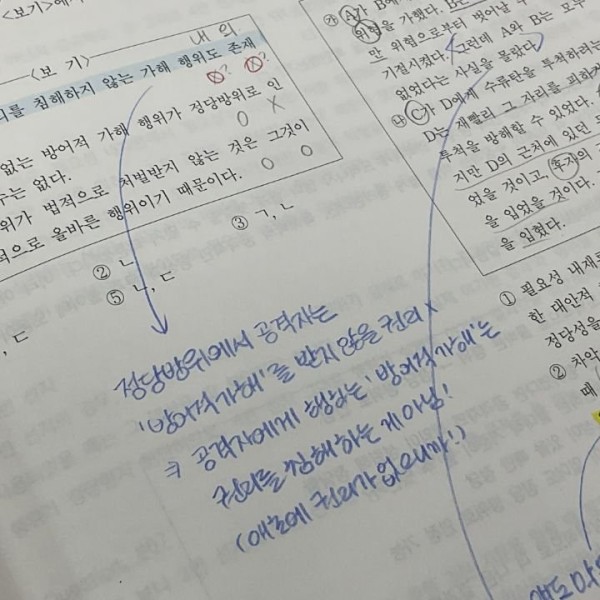 <보기>
<보 기>
내 의
리를 침해하지 않는 가해 행위도 존재
없는 방어적 가해 행위가 정당방위로 인
수는 없다.
O X
위가 법적으로 처벌받지 않는 것은 그것이
적으로 올바른 행위이기 때문이다.
O O
② ㄴ
③ ㄱ, ㄴ
⑤ ㄴ, ㄷ
, ㄷ
정당방위에서 공격자는
'방어적가해'를 받지 않을 권리 X
⇒ 공격자에게 행하는 '방어적가해'는
권리를 침해하는 게 아님!
(애초에 권리가 없으니까!)
㉮ A가 B에
위험을 가했다. B는
만 위험으로부터 벗어날 수
기절시켰다. 그런데 A와 B는 모두
없었다는 사실을 몰랐다.
㉯ C가 D에게 수류탄을 투척하려는
D는 재빨리 그 자리를 피하거
투척을 방해할 수 있었다.
지만 D의 근처에 있던
었을 것이고, 후자의
을 입었을 것이다.
을 입혔다.
① 필요성 내재
한 대안적
정당성을
② 차악
때